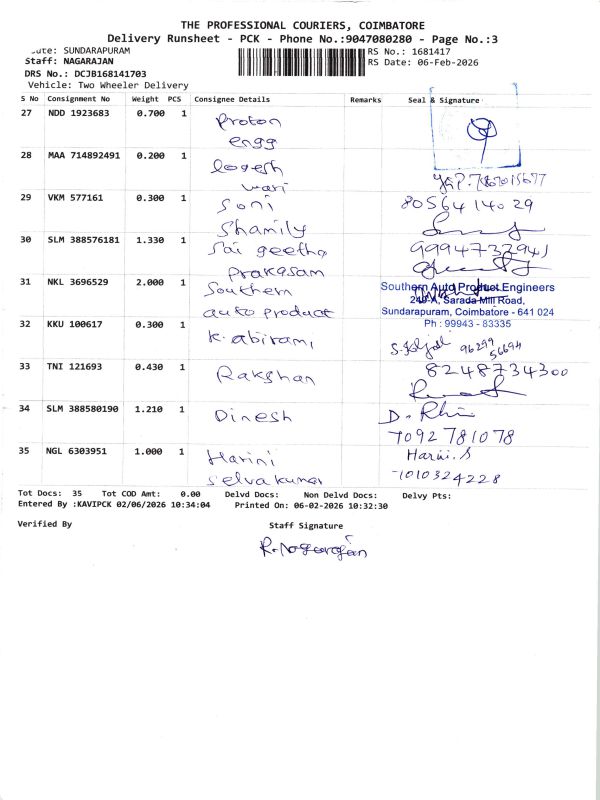 THE PROFESSIONAL COURIERS, COIMBATORE
Delivery Runsheet - PCK - Phone No.:9047080280 - Page No.:3
SUNDARAPURAM
RS No.: 1681417
Staff: NAGARAJAN
RS Date: 06-Feb-2026
DRS No.: DCJB168141703
Vehicle: Two Wheeler Delivery
S No Consignment No Weight PCS Consignee Details Remarks Seal & Signature
27 NDD 1923683 0.700 1 Proton
engg
28 MAA 714892491 0.200 1 logesh
wari
29 VKM 577161 0.300 1 Soni 8056414029
Shamily
30 SLM 388576181 1.330 1 Sai geetha 9994732941
prakasam
31 NKL 3696529 2.000 1 Southern Southern Auto Product Engineers
249-A, Sarada Mill Road,
auto product Sundarapuram, Coimbatore - 641 024
Ph : 99943 - 83335
32 KKU 100617 0.300 1 K. abirami 96299
56694
33 TNI 121693 0.430 1 Rakshan 8248734300
34 SLM 388580190 1.210 1 Dinesh
7092781078
35 NGL 6303951 1.000 1 Harini Harini.S
Selvakumar 1010324228
Tot Docs: 35 Tot COD Amt: 0.00 Delvd Docs: Non Delvd Docs: Delvy Pts:
Entered By :KAVIPCK 02/06/2026 10:34:04 Printed On: 06-02-2026 10:32:30
Verified By Staff Signature
R. Nagarajan